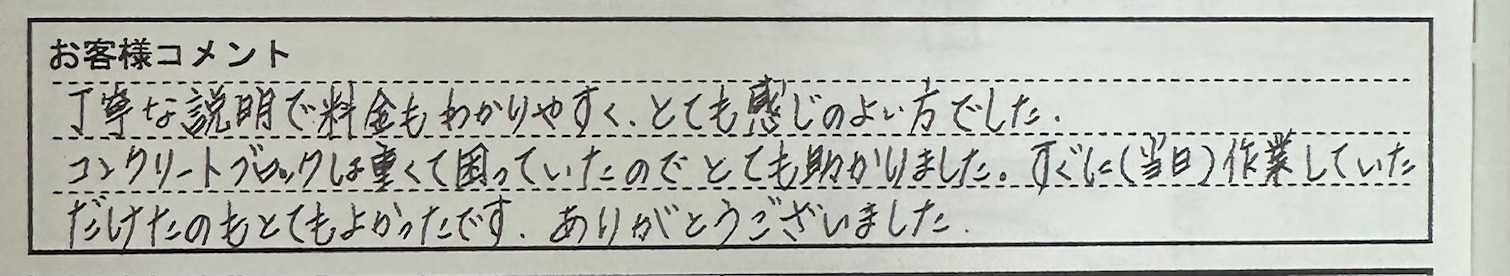 お客様コメント
丁寧な説明で料金もわかりやすく、とても感じのよい方でした.
コンクリートブロックは重くて困っていたのでとても助かりました。すぐに(当日)作業していた
だけたのもとてもよかったです. ありがとうございました.